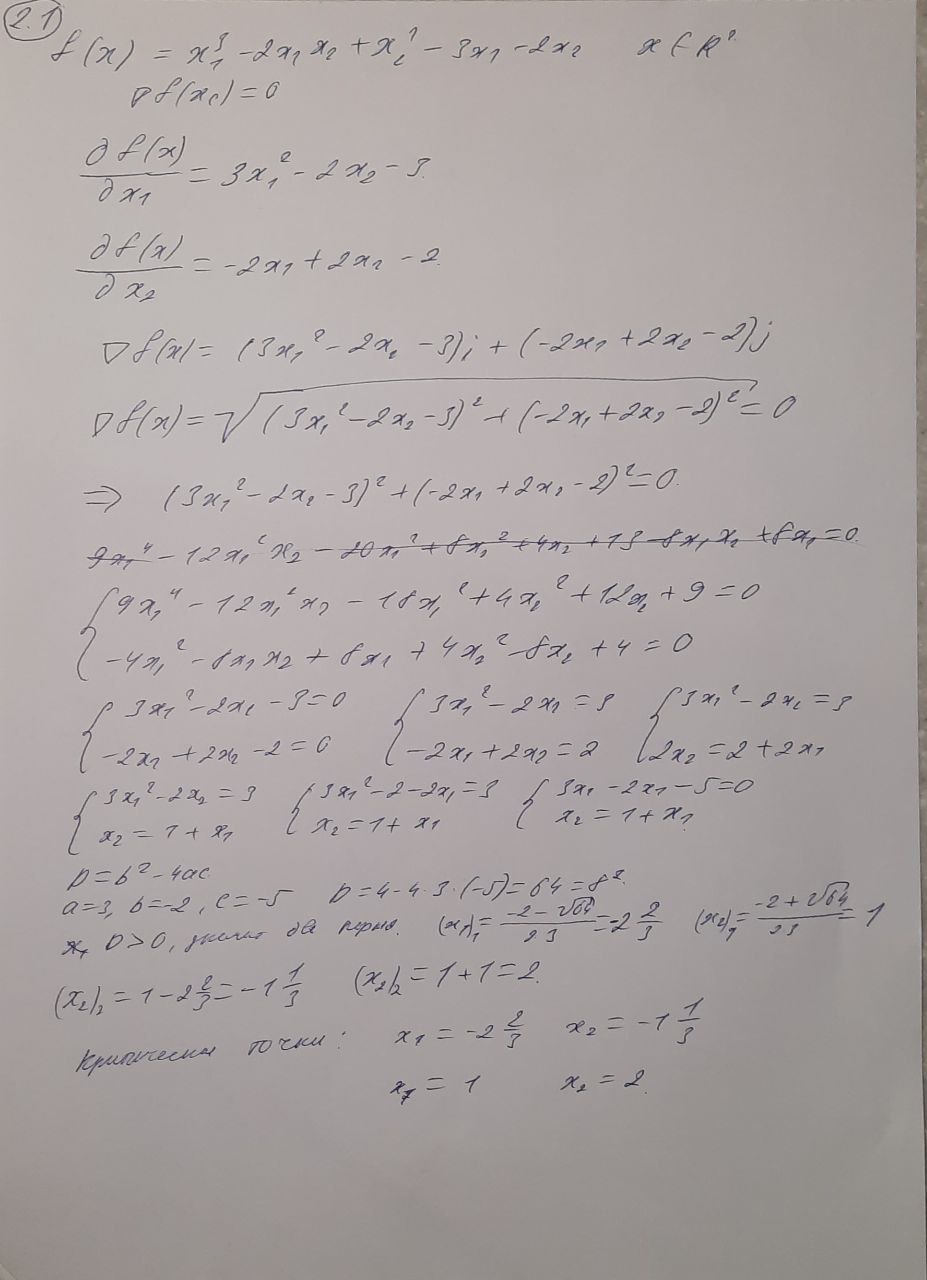 2.1
f(x) = x₁³ - 2x₁x₂ + x₂² - 3x₁ - 2x₂   x ∈ R²
∇f(x_c) = 0
∂f(x)/∂x₁ = 3x₁² - 2x₂ - 3.
∂f(x)/∂x₂ = -2x₁ + 2x₂ - 2.
∇f(x) = (3x₁² - 2x₂ - 3)i + (-2x₁ + 2x₂ - 2)j
∇f(x) = √((3x₁² - 2x₂ - 3)² + (-2x₁ + 2x₂ - 2)²) = 0
⇒ (3x₁² - 2x₂ - 3)² + (-2x₁ + 2x₂ - 2)² = 0.
9x₁⁴ - 12x₁²x₂ - 20x₁² + 8x₂² + 4x₂ + 13 - 8x₁x₂ + 8x₁ = 0.
{ 9x₁⁴ - 12x₁²x₂ - 18x₁² + 4x₂² + 12x₂ + 9 = 0
-4x₁² - 8x₁x₂ + 8x₁ + 4x₂² - 8x₂ + 4 = 0
{ 3x₁² - 2x₂ - 3 = 0   { 3x₁² - 2x₂ = 3   { 3x₁² - 2x₂ = 3
-2x₁ + 2x₂ - 2 = 0   -2x₁ + 2x₂ = 2   2x₂ = 2 + 2x₁
{ 3x₁² - 2x₂ = 3   { 3x₁² - 2 - 2x₁ = 3   { 3x₁ - 2x₁ - 5 = 0
x₂ = 1 + x₁   x₂ = 1 + x₁   x₂ = 1 + x₁
D = b² - 4ac
a = 3, b = -2, c = -5   D = 4 - 4·3·(-5) = 64 = 8².
D > 0, значит два   (x₁)₁ = (-2 - √64)/(2·3) = -2 2/3   (x₂)₁ = (-2 + √64)/(2·3) = 1
(x₂)₂ = 1 - 2 2/3 = -1 1/3   (x₂)₂ = 1 + 1 = 2.
Критические точки:   x₁ = -2 2/3   x₂ = -1 1/3
x₁ = 1   x₂ = 2.